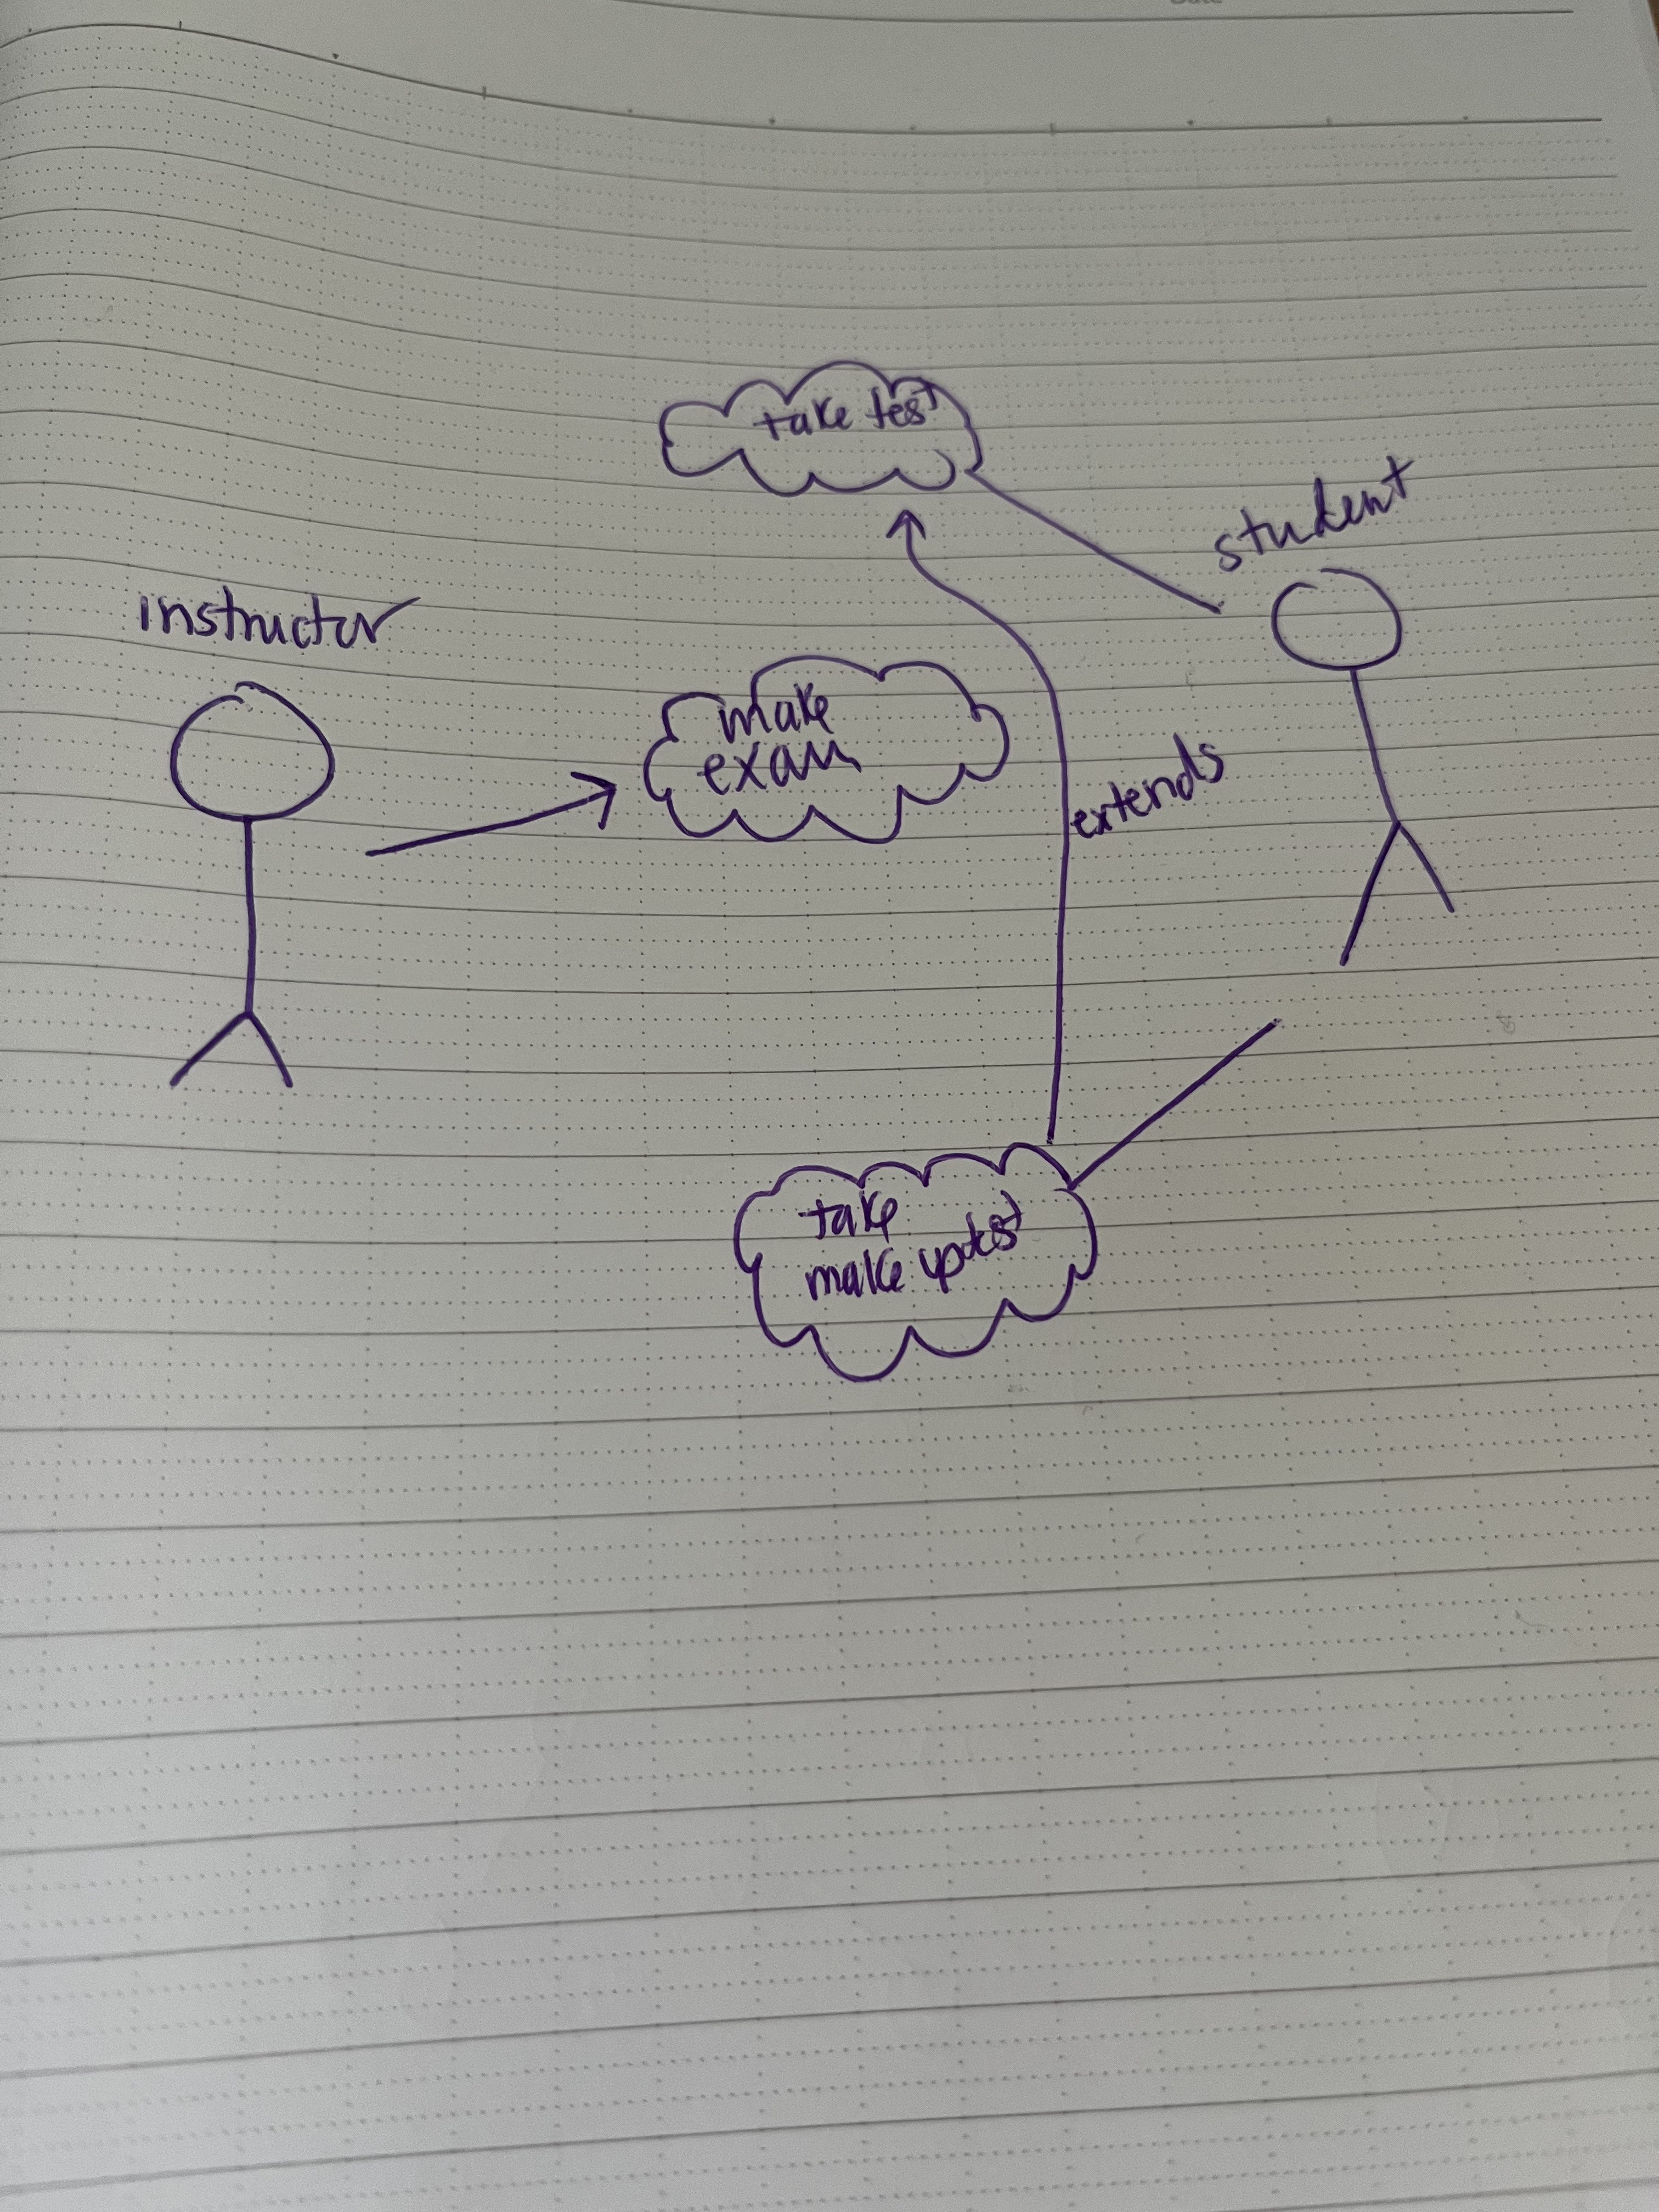 take test
student
instructor
make
exam
extends
take
make up test